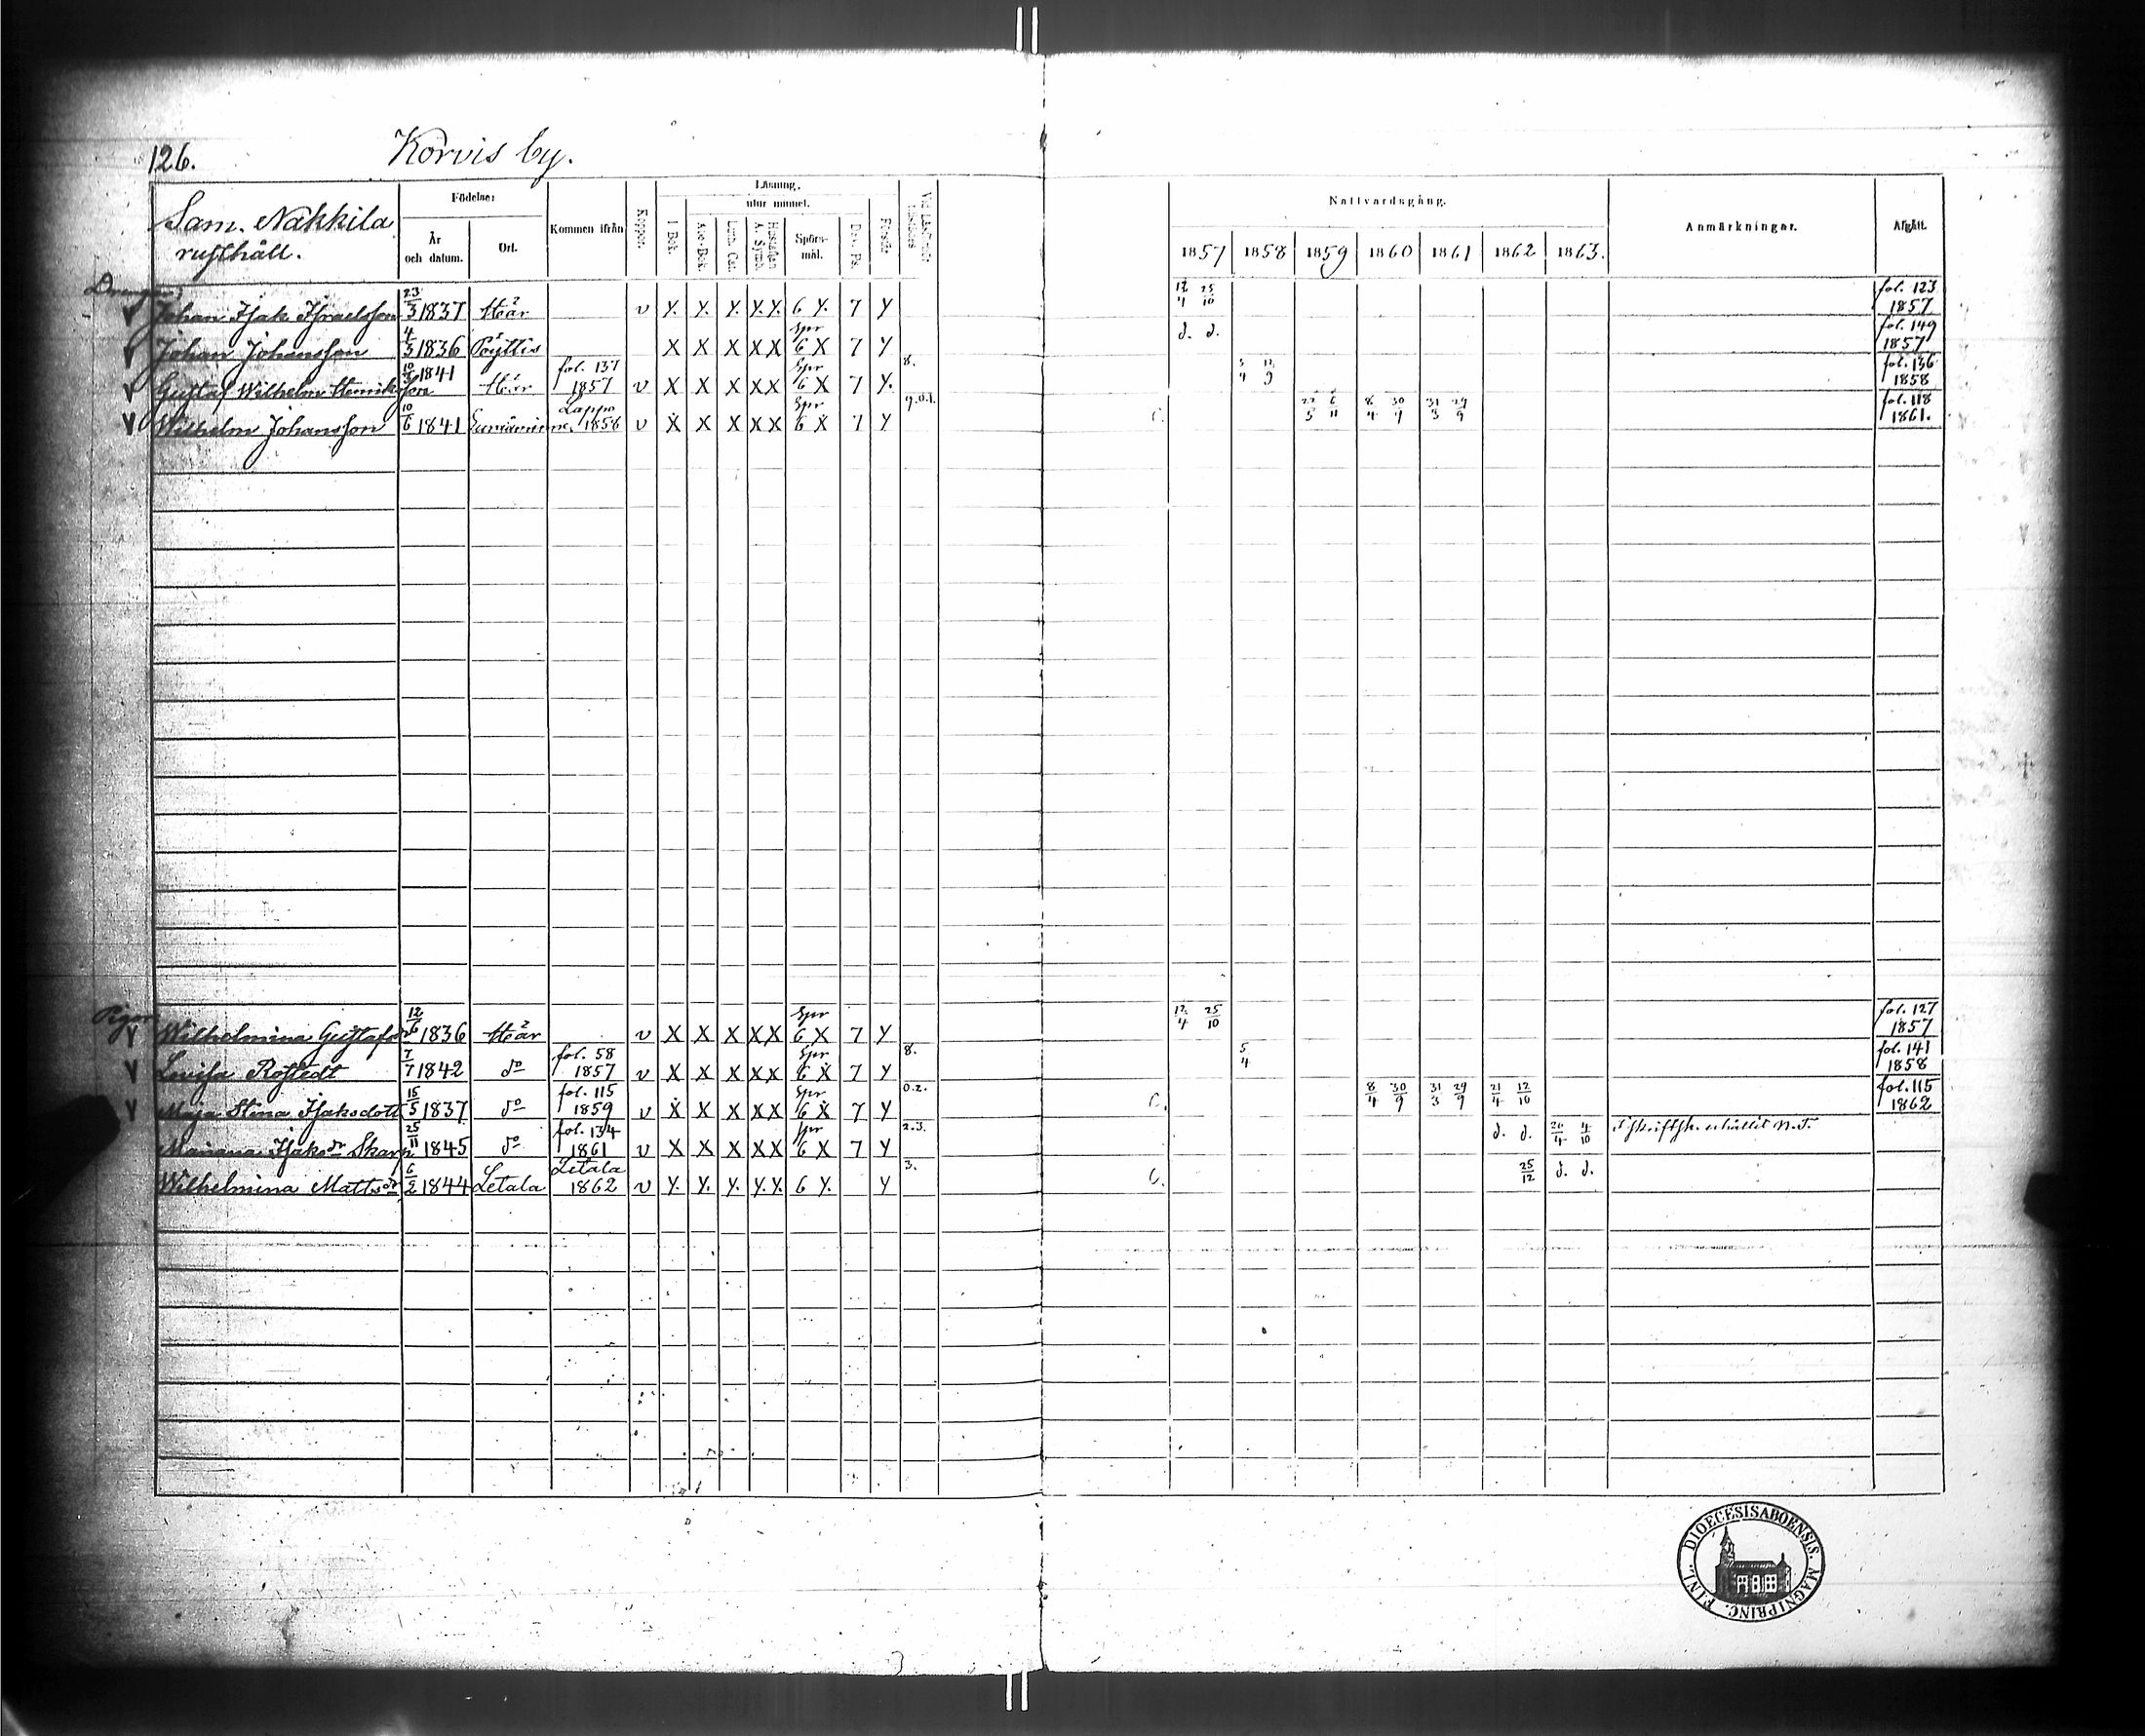 126. Korvis by.
Sam. Nakkila
rusthåll.
Födelse:
År och datum.
Ort.
Kommen ifrån
Koppor.
Läsning.
utur minnet.
I Bok.
Abc-Bok.
Luth. Cat.
Hustaflan A. Symb.
Spörsmål.
Dav. Ps.
Förstår
Nattvardsgång.
1857 1858 1859 1860 1861 1862 1863.
Anmärkningar.
Afgått.
Johan Isak Israelsson 23/3 1837 Här v y. y. y. y. y. 6 y. 7 y 12/4 25/10 fol. 123 1857
Johan Johansson 4/3 1836 Pöyttis X X X X X Spr 6 X 7 y d. d. fol. 149 1857
Gustaf Wilhelm Henriksson 1841 Här fol. 137 1857 v X X X X X Spr 6 X 7 y. 8. fol. 136 1858
Wilhelm Johansson 10/6 1841 Lappo 1858 v X X X X X Spr 6 X 7 y 9.0.1. C. 6/11 8/4 30/9 31/3 29/9 fol. 118 1861.
Pigor
Wilhelmina Gustafsdr 12/6 1836 Här v X X X X X Spr 6 X 7 y 12/4 25/10 fol. 127 1857
Lovisa Rostedt 7/7 1842 do fol. 58 1857 v X X X X X Spr 6 X 7 y 8. 5/4 fol. 141 1858
Maja Stina Isaksdott 15/5 1837 do fol. 115 1859 v X X X X X Spr 6 X 7 y 0.2. C. 8/4 30/9 31/3 29/9 21/4 12/10 fol. 115 1862
Mariana Isaksdr Skarp 25/11 1845 do fol. 134 1861 v X X X X X Spr 6 X 7 y 2.3. d. d. 26/4 4/10 erhållit N.T.
Wilhelmina Mattsdr 6/2 1844 Letala Letala 1862 v y. y. y. y. y. 6 y. y 3. C. 25/12 d. d.
DIOECESIS ABOENSIS. MAGNI PRINC. FINL.